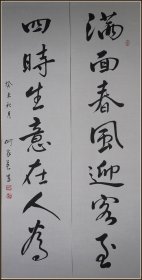 满面春風迎客至
四時生意在人為